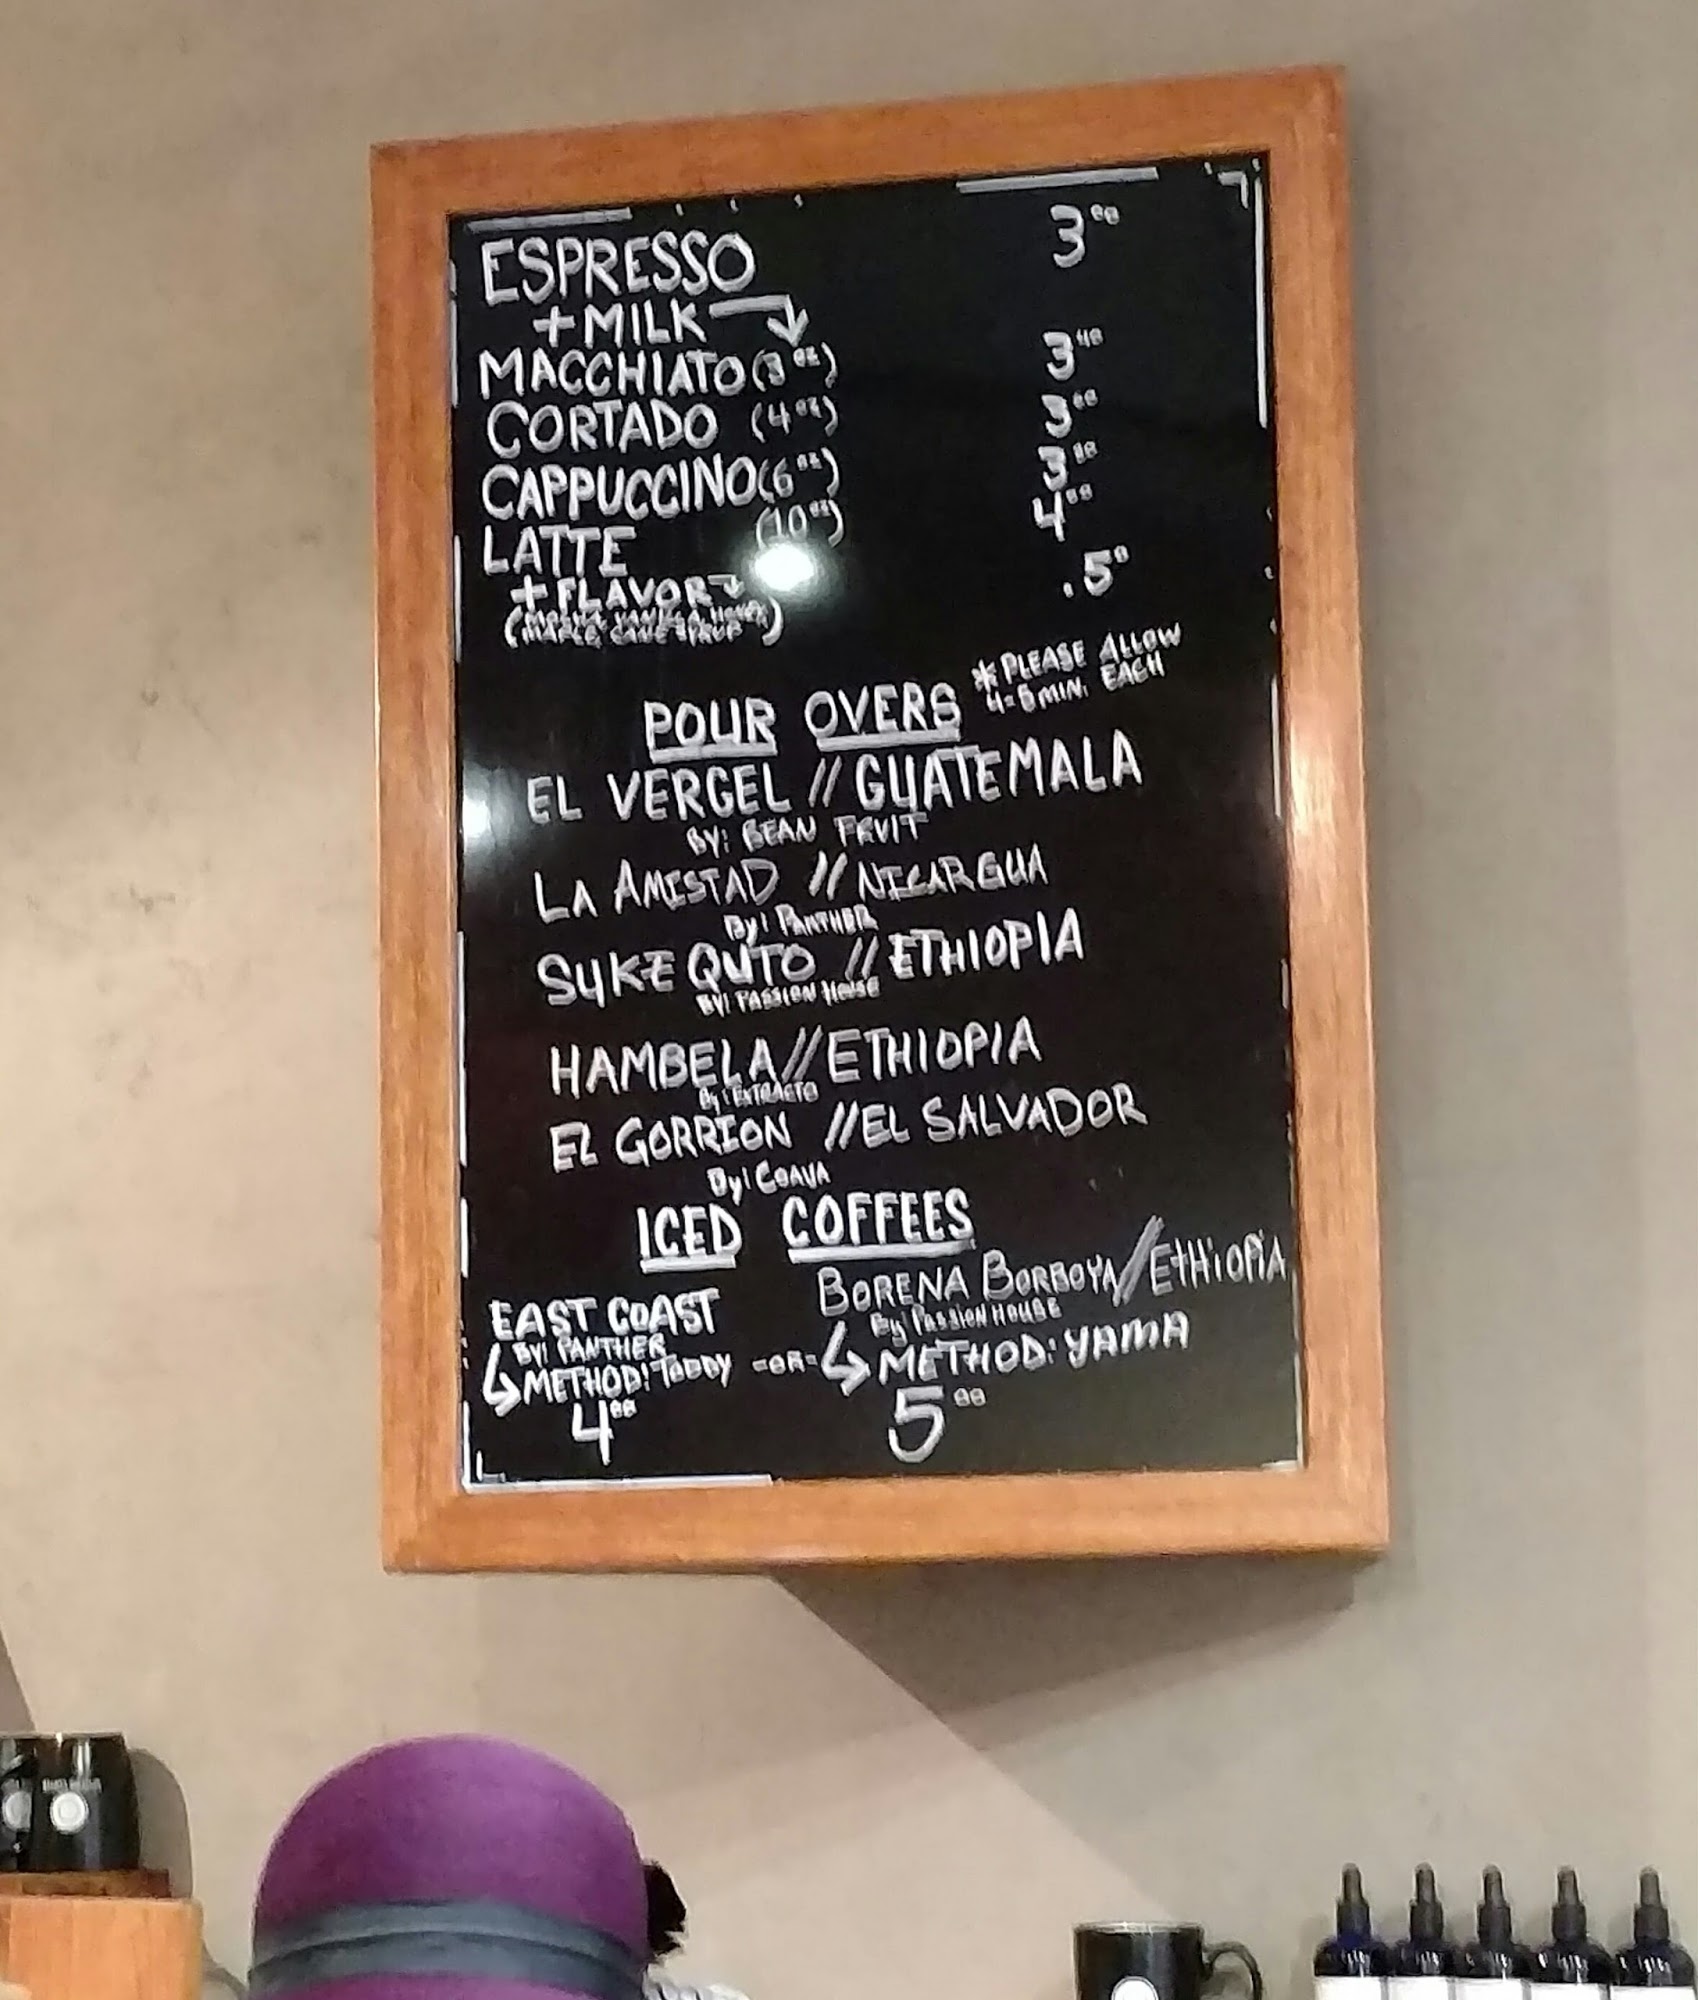 ESPRESSO 3⁰⁰
+ MILK
MACCHIATO (3 oz) 3⁴⁰
CORTADO (4 oz)
CAPPUCCINO (6 oz)
LATTE (10 oz)
+ FLAVOR .5⁰
(MOCHA, VANILLA, HONEY,
MAPLE, CANE SYRUP)
* PLEASE ALLOW
MIN. EACH
POUR OVERS
EL VERGEL // GUATEMALA
BY: BEAN FRUIT
LA AMISTAD // NICARGUA
By: PANTHER
SUKE QUTO // ETHIOPIA
BY: PASSION HOUSE
HAMBELA // ETHIOPIA
By: EXTRACTO
EL GORRION // EL SALVADOR
By: COAVA
ICED COFFEES
EAST COAST
BY: PANTHER
METHOD: TODDY
4⁰⁰
-OR-
BORENA BORBOYA // ETHIOPIA
By PASSION HOUSE
METHOD: YAMA
5⁰⁰